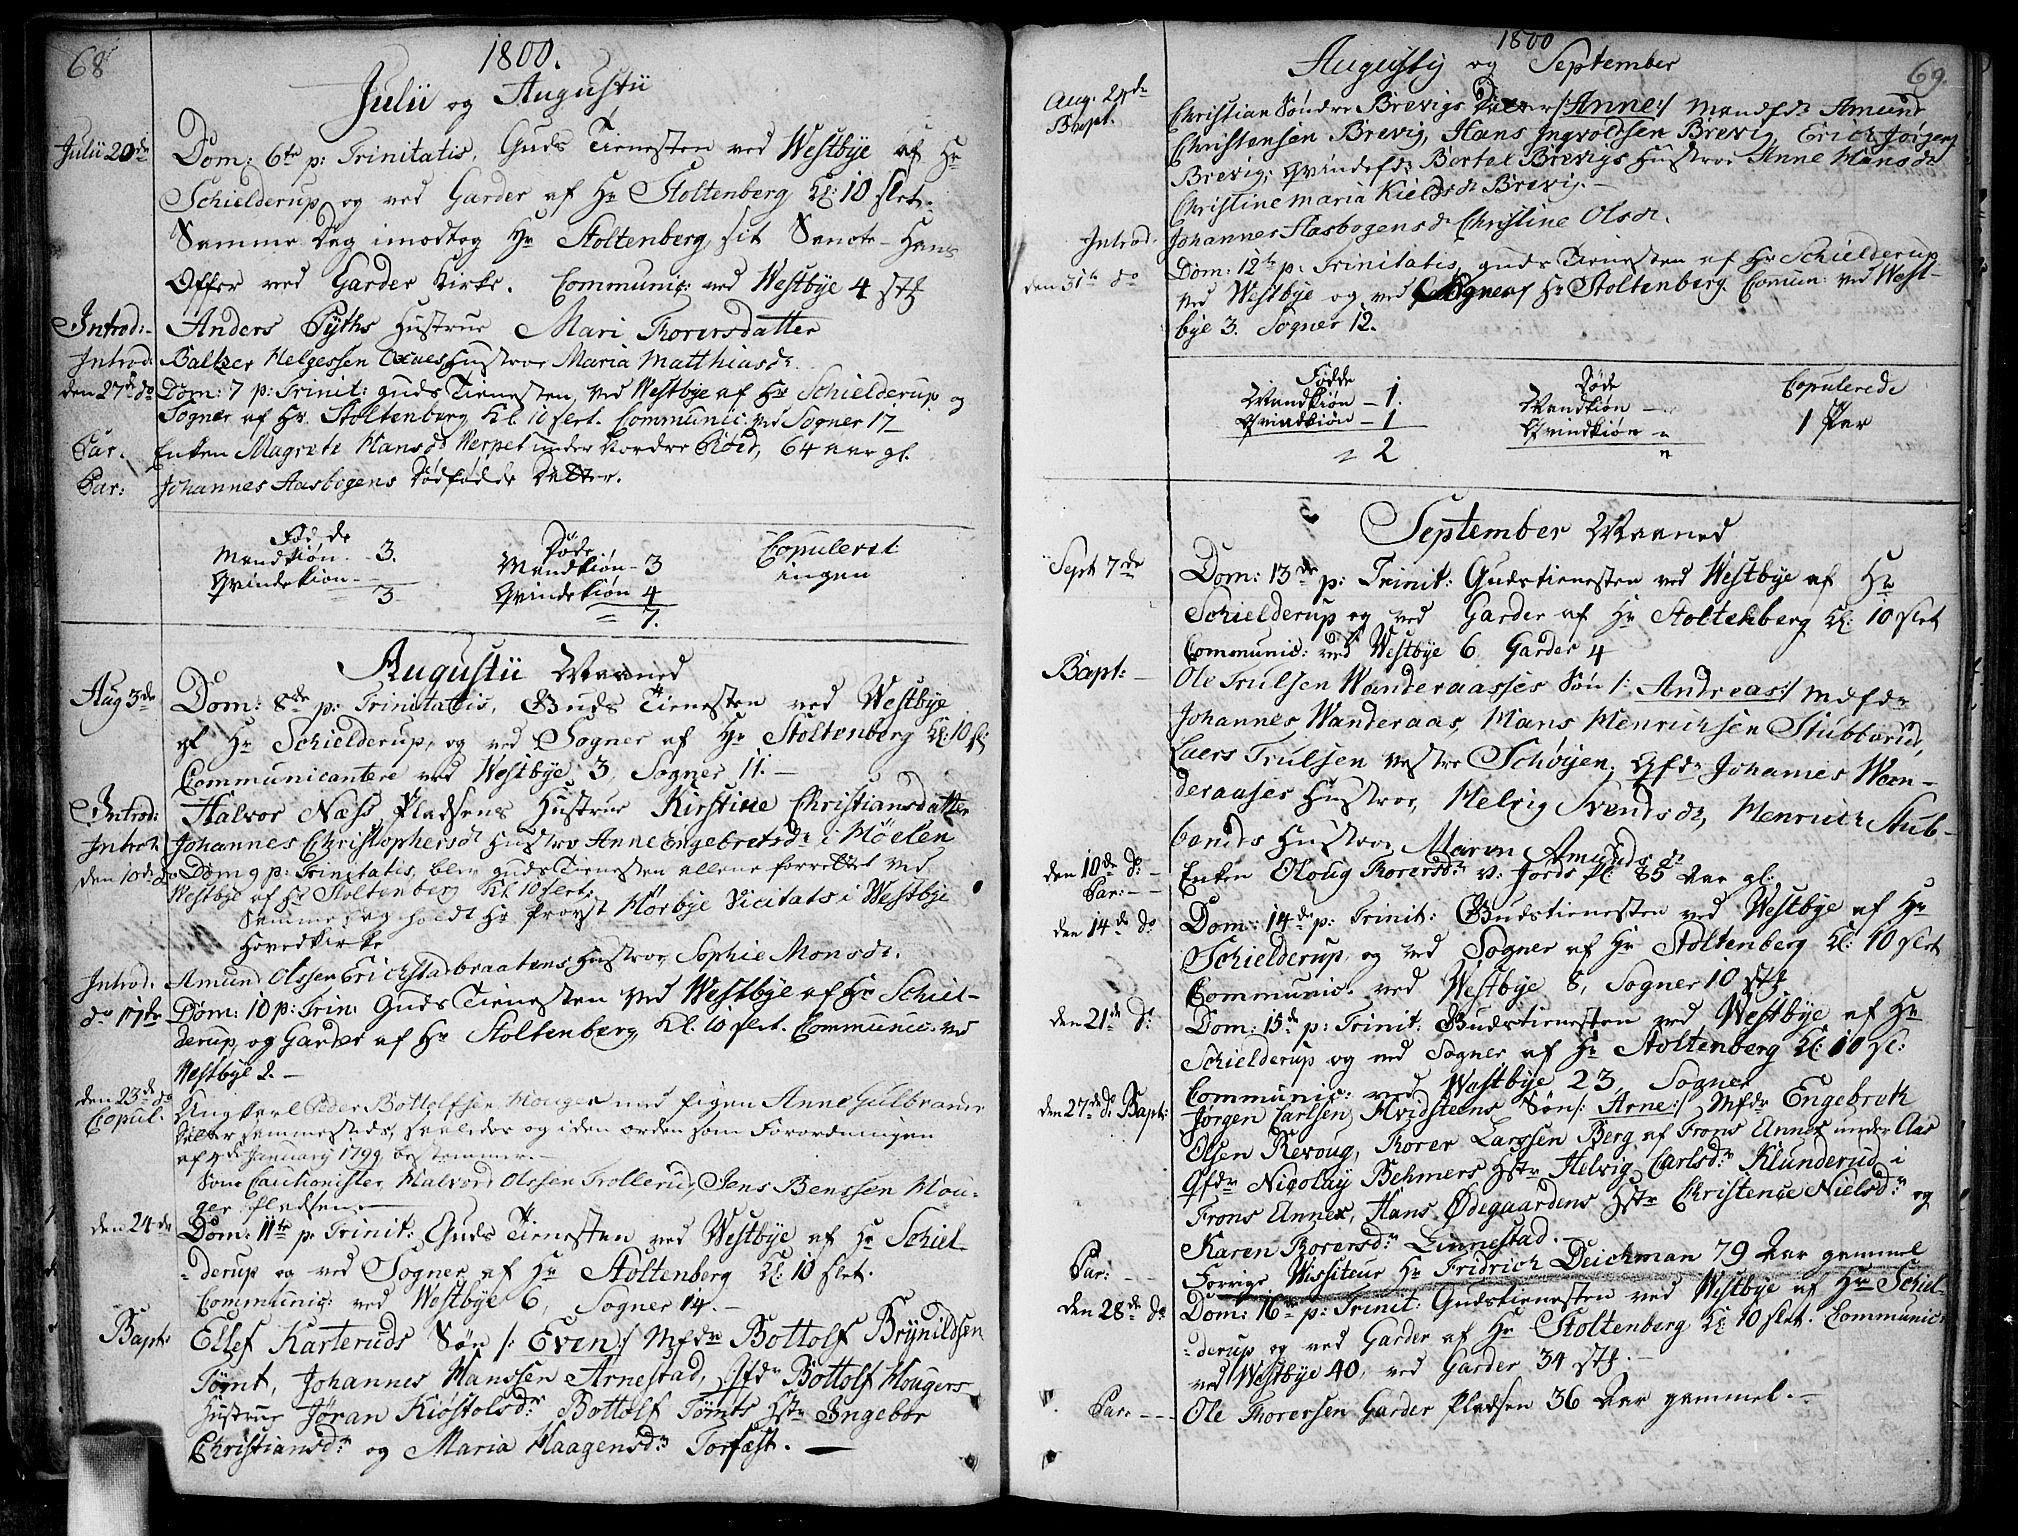 68
1800.
Julii og Augustii
Julii 20de Dom: 6te p: Trinitatis, Guds Tienesten ved Westbye af Hr
Schielderup, og ved Garder af Hr Stoltenberg Kl: 10 slet.
Samme Dag imodtog Hr Stoltenberg, sit Senote-Hans
Offer ved Garder Kirke. Communic: ved Westbye 4 stk
Introd:- Anders Pyths Hustrue Mari Thorersdatter
Introd: Baltzer Helgessen Hustroe Maria Matthiasdr.
den 27de do Dom: 7 p: Trinit: Guds Tienesten, ved Westbye af Hr Schielderup og
Sogner af Hr. Stoltenberg Kl. 10 slet. Communic. ved Sogner 17
Enken Magrete Hansdr Werpet under Nordre Röed, 64 aar gl.
Johannes Aasbogens Dödfødde Datter.
Födde Döde Copuleret
Mandkiøn - 3. Mandkiøn - 3 ingen
Qvindekiøn - Qvindekiøn 4
3 7.
Augustii Maaned
Aug 3de Dom: 8de p: Trinitatis, Guds Tienesten ved Westbye
af Hr Schielderup, og ved Sogner af Hr Stoltenberg Kl: 10 sl:
Communicantere ved Westbye 3, Sogner 11. -
Introd: Halvor Næss Pladsens Hustrue Kirstine Christiansdatter
Introd. Johannes Christophersdr Hustro Anne Engebretsdr i Höelen
den 10de do Dom 9 p: Trinitatis, blev guds Tienesten allene forrettet ved
Westbye af Hr Stoltenberg Kl 10 slet:
Samme Dag holdt Hr Provst Hörbye Vicitats i Westbye
Hovedkirke
Introd: Amund Olssen Erichstadbraatens Hustroe, Sophie Monsdr.
do 17de Dom: 10 p: Trin: Guds Tienesten ved Westbye af Hr Schiel-
derup, og Garder af Hr Stoltenberg, Kl. 10 slet. Communic. ved
Westbye 2. -
den 23de do
Copul. Ung Karl Peder Bottolfsen Houger med Pigen Anne Gulbrands
datter sammesteds, saaledes og i den orden som Forordningen
af 4de January 1799 bestemmer. -
Som Cautionister, Halvord Olssen Trollerud, Jens Benssen Hou-
ger Pladsen
den 24de Dom: 11te p: Trinit: Guds Tienesten ved Westbye af Hr Schiel-
derup og ved Sogner af Hr Stoltenberg Kl: 10 slet.
Communic: ved Westbye 6, Sogner 14. -
Bapt: Ellef Karteruds Sön /: Even :/ Mfdr Bottolf Brynildsen
Tömt, Johannes Hanssen Arnestad, Qfdr Bottolf Hougers
Hustrue Jöran Kiöstolsdr, Bottolf Tömts Hstr Ingebor
Christiansdr og Maria Haagensdr Torfæst. -
1800 69.
Augusty og September
Aug. 24de
Bapt. Christian Söndre Brevigs /: Anne :/ Mandfdr Amund
Christensen Brevig, Hans Ingvoldsen Brevig Erich Jörgens
Brevig; Qvindefdr Bertel Brevigs Hustroe Anne Hansdr
Christine Maria Kieldsdr Brevig. -
Introd. Johannes Aasbogens Christine Olsdr.
den 31te do Dom: 12te p: Trinitatis, guds Tienesten af Hr Schielderup
ved Westbye og ved Sogner af Hr Stoltenberg. Comun: ved West-
bye 3. Sogner 12.
Födde Döde Copulerede
Mandkiön - 1. Mandkiön - 1 Par
Qvindkiön - 1 Qvindkiön -
2
September Maaned
Sept 7de Dom: 13de p: Trinit: Gudstienesten ved Westbye af Hr
Schielderup og ved Garder af Hr Stoltenberg Kl: 10 slet
Communic: ved Westbye 6 Garder 4
Bapt: - Ole Trulsen Wanderaasses Sön /: Andreas :/ Mdfdr
Johannes Wanderaas, Hans Henrichsen Stubberud,
Laers Trulsen Vestre Schöijen; Qfdr Johannes Wan-
deraases Hustroe, Helvig Svendsdr, Henrich Stub-
beruds Hustroe Maren Amundsdr
den 10de do -
Enken Oloug Thorersdr v. Jords Pl 85 Aar gl:
den 14de do Dom: 14de p: Trinit: Gudstienesten ved Westbye af Hr
Schielderup, og ved Sogner af Hr Stoltenberg Kl: 10 slet
Communic. ved Westbye 8, Sogner 10 stk
den 21de do Dom: 15de p: Trinit: Gudstienesten ved Westbye af Hr
Schielderup og ved Sogner af Hr Stoltenberg Kl: 10 sl:
Communic: ved Westbye 23, Sogner
den 27de do Bapt: Jörgen Carlsen Hvidsteens Sön /: Arne :/ Mfdr Engebreth
Olsen Revoug, Thorer Larssen Berg af Frons Annex under Aas
Qfdr Nicolay Behmers Hstr Helvig Carlsdr Klunderud i
Frons Annex, Hans Ødegaardens Hstr Christence Nielsdr og
Karen Thorersdr Linnestad.
Forrige Vissiteur Hr Fridrich Deichman 79 Aar gammel
den 28de do Dom: 16de p: Trinit: Gudstienesten ved Westbye af Hr Schiel-
derup og ved Garder af Hr Stoltenberg Kl: 10 slet. Communic:
ved Westbye 40, ved Garder 34 stk. -
Ole Thorersen Garder Pladsen 36 Aar gammel. -